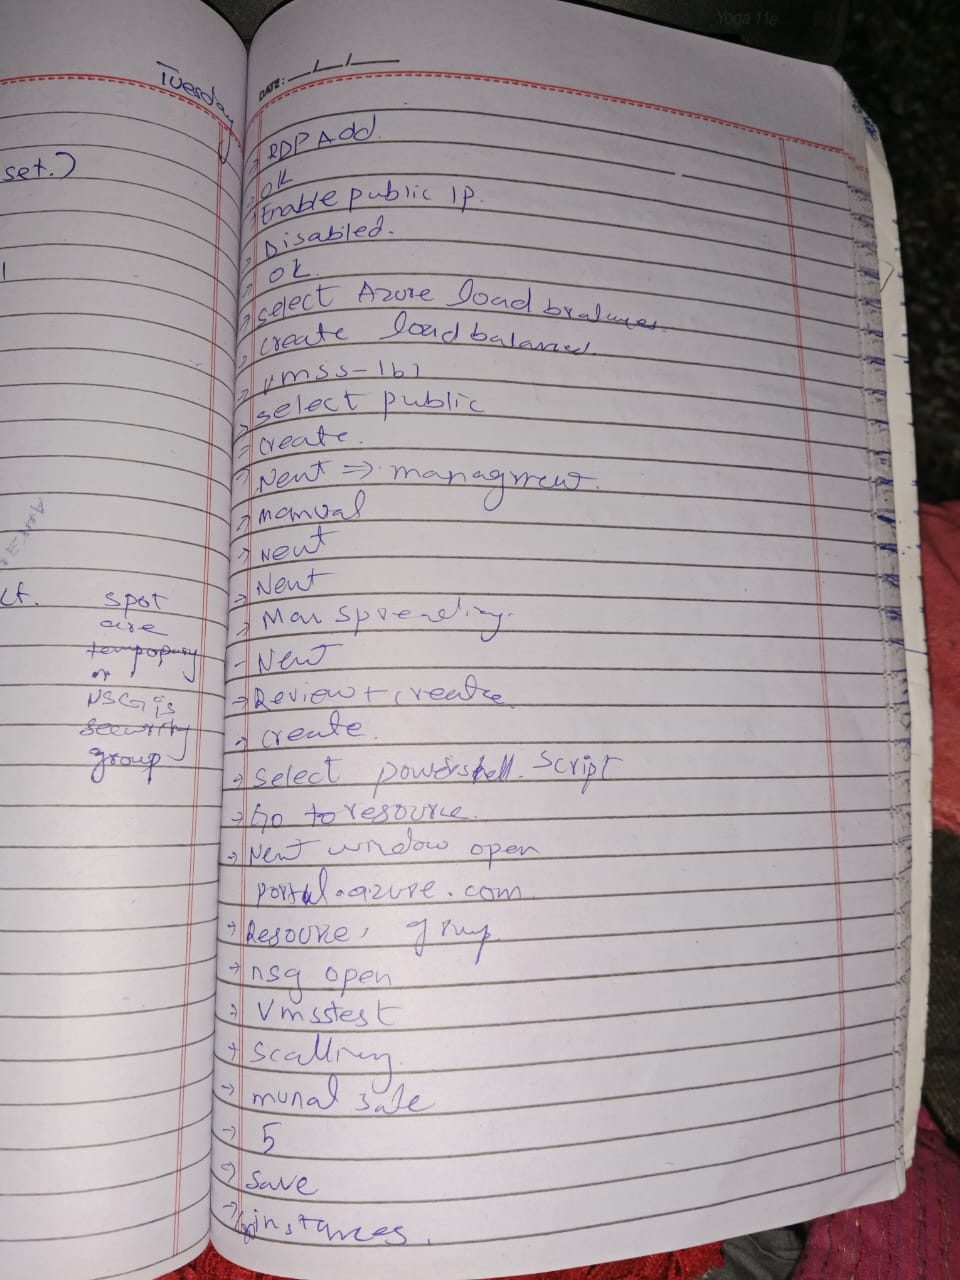 Tuesday
set.)
ct. spot
are
tempopury
or
NSG is
security
group
Yoga 11e
DATE: __/__/____
→ RDP Add
→ ok
→ Enable public IP.
→ Disabled.
→ ok.
→ select Azure load bralances
→ create load balanced
→ vmss-lb1
→ select public
→ create.
→ Next ⇒ managment.
→ manual
→ Next
→ Next
→ Max sprending.
- Next
→ Review + create
→ create.
→ select powershell. Script
→ Go to resource.
→ Next window open
portal.azure.com
→ Resource, group
→ nsg open
→ Vmsstest
→ Scalling
→ munal sale
→ 5
→ Save
→ instances.